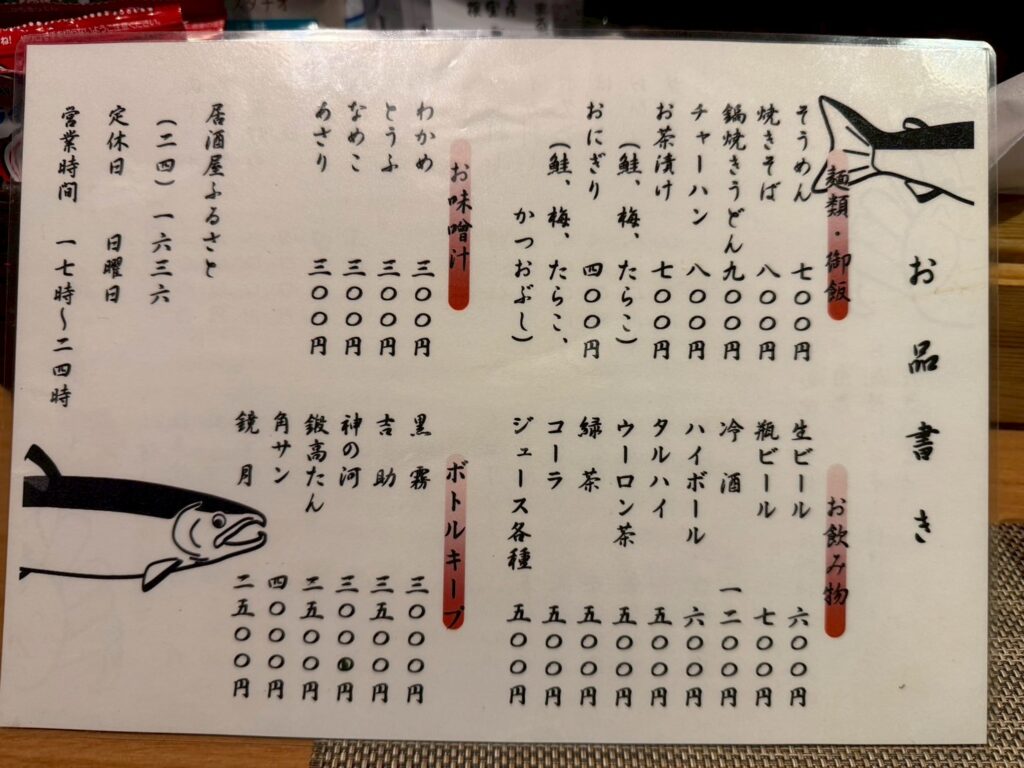 お品書き
麺類・御飯
そうめん 七〇〇円
焼きそば 八〇〇円
鍋焼きうどん 九〇〇円
チャーハン 八〇〇円
お茶漬け 七〇〇円
(鮭、梅、たらこ)
おにぎり 四〇〇円
(鮭、梅、たらこ、
かつおぶし)
お味噌汁
わかめ 三〇〇円
とうふ 三〇〇円
なめこ 三〇〇円
あさり 三〇〇円
お飲み物
生ビール 六〇〇円
瓶ビール 七〇〇円
冷酒 一二〇〇円
ハイボール 六〇〇円
タルハイ 五〇〇円
ウーロン茶 五〇〇円
緑茶 五〇〇円
コーラ 五〇〇円
ジュース各種 五〇〇円
ボトルキープ
黒霧 三〇〇〇円
吉助 三五〇〇円
神の河 三〇〇〇円
鍛高たん 二五〇〇円
角サン 四〇〇〇円
鏡月 二五〇〇円
居酒屋ふるさと
(二四)一六三六
定休日 日曜日
営業時間 一七時〜二四時